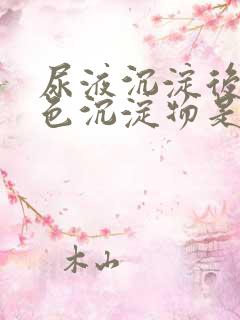 尿液沉淀後
色沉淀物是
木山